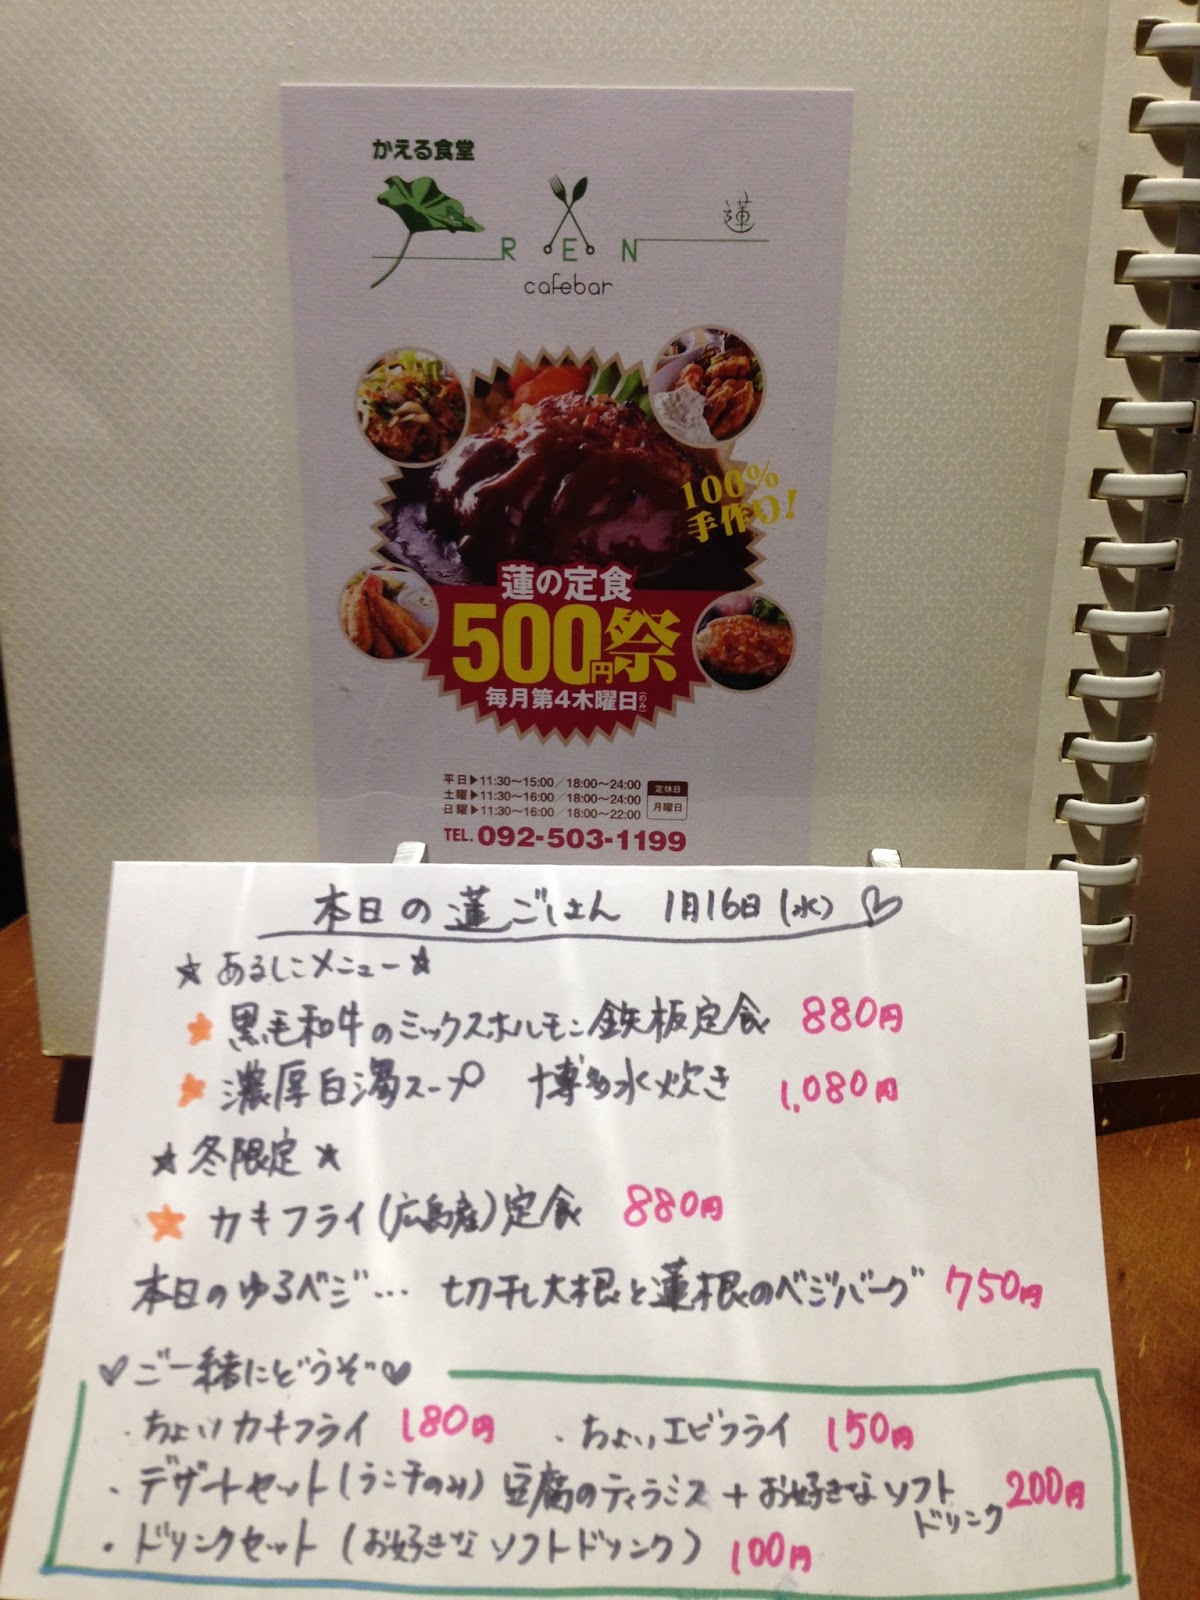 かえる食堂
REN
蓮
cafebar
100%
手作り!
蓮の定食
500円祭
毎月第4木曜日(のみ)
平日▶11:30～15:00/18:00～24:00
土曜▶11:30～16:00/18:00～24:00
日曜▶11:30～16:00/18:00～22:00
定休日
月曜日
TEL. 092-503-1199
本日の蓮ごはん 1月16日(水)♡
★あるじこメニュー★
★黒毛和牛のミックスホルモン鉄板定食 880円
★濃厚白濁スープ 博多水炊き 1,080円
★冬限定★
★カキフライ(広島産)定食 880円
本日のゆるベジ… 切干し大根と蓮根のベジバーグ 750円
♥ご一緒にどうぞ♥
・ちょいカキフライ 180円 ・ちょいエビフライ 150円
・デザートセット(ランチのみ) 豆腐のティラミス+お好きなソフトドリンク 200円
・ドリンクセット(お好きなソフトドリンク) 100円